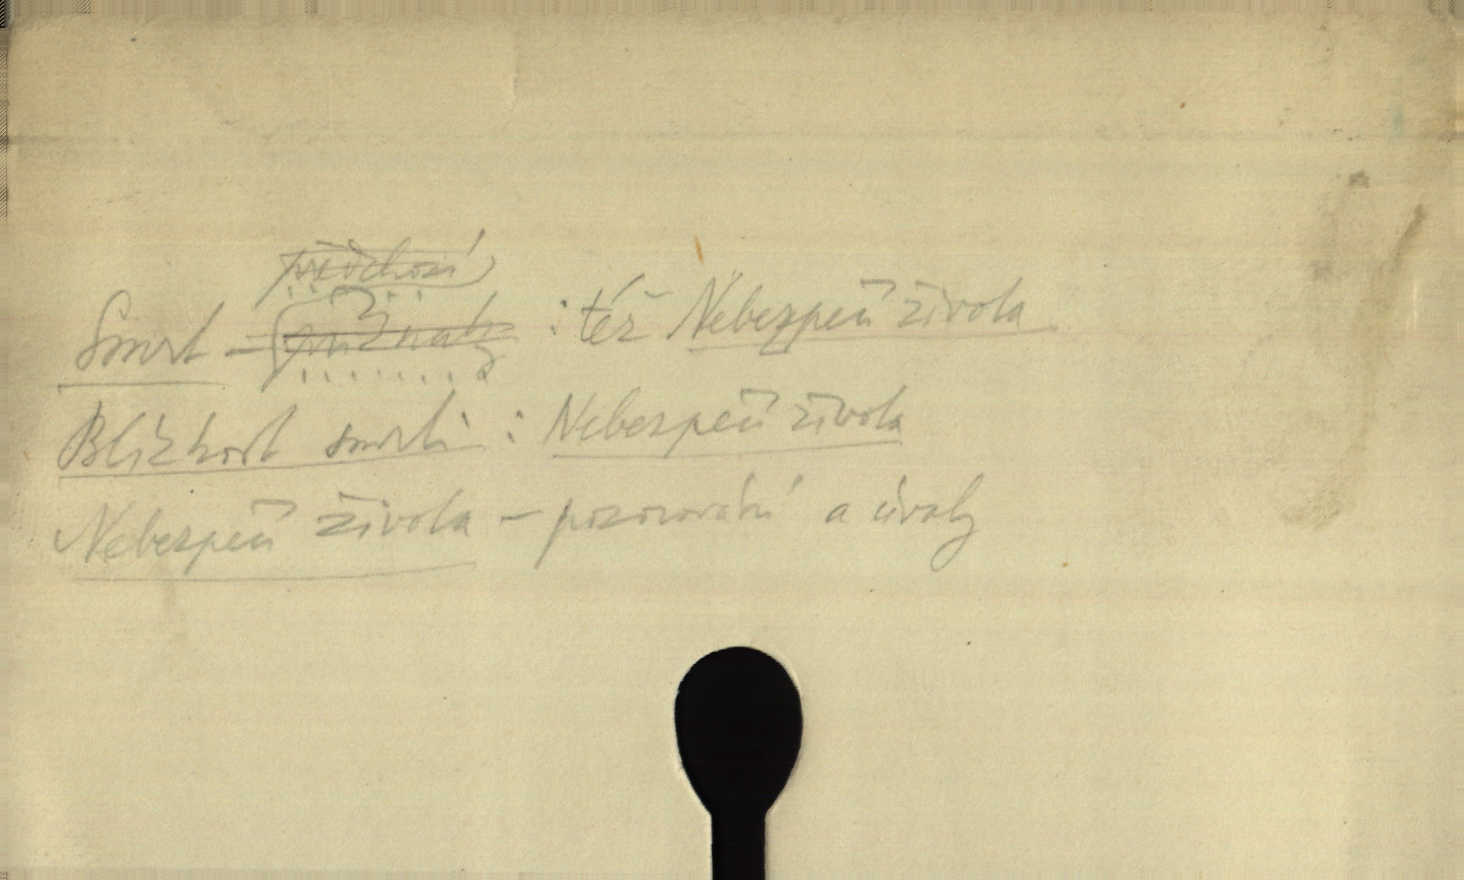 předchozí
Smrt – příznaky : též Nebezpečí života
Blízkost smrti : Nebezpečí života
Nebezpečí života – pozorování a úvahy